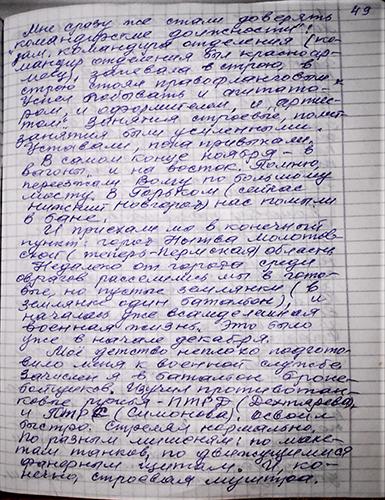 49
Мне сразу же стали доверять
"командирские должности" (по-
дам. командира отделения (ко-
мандир отделения был красноар-
меец), запевала в строю, в
строю стоял правофланговым.
Успел побывать и агитато-
ром, и оформителем, и артис-
том. Занятия строевые, полит-
занятия были усиленными.
Уставали, пока привыкали.
В самом конце ноября – в
вагоны, и на восток. Помню,
переезжали Волгу по большому
мосту. В Горьком (сейчас
Нижний Новгород) нас помыли
в бане.
И приехали мы в конечный
пункт: город Нытва Молотов-
ской (теперь – Пермская) область.
Недалеко от города среди
оврагов расселились мы в гото-
вые, но пустые землянки (в
землянке один батальон), и
началась уже всамделишная
военная жизнь. Это было
уже в начале декабря.
Моё детство неплохо подгото-
вило меня к военной службе.
Зачислен я в батальон броне-
бойщиков. Изучил противотан-
ковые ружья – ПТРД (Дехтярева)
и ПТРС (Симонова), освоил
быстро. Стрелял нормально.
По разным мишеням: по маке-
там танков, по движущимся
фанерным щитам. И, ко-
нечно, строевая муштра.